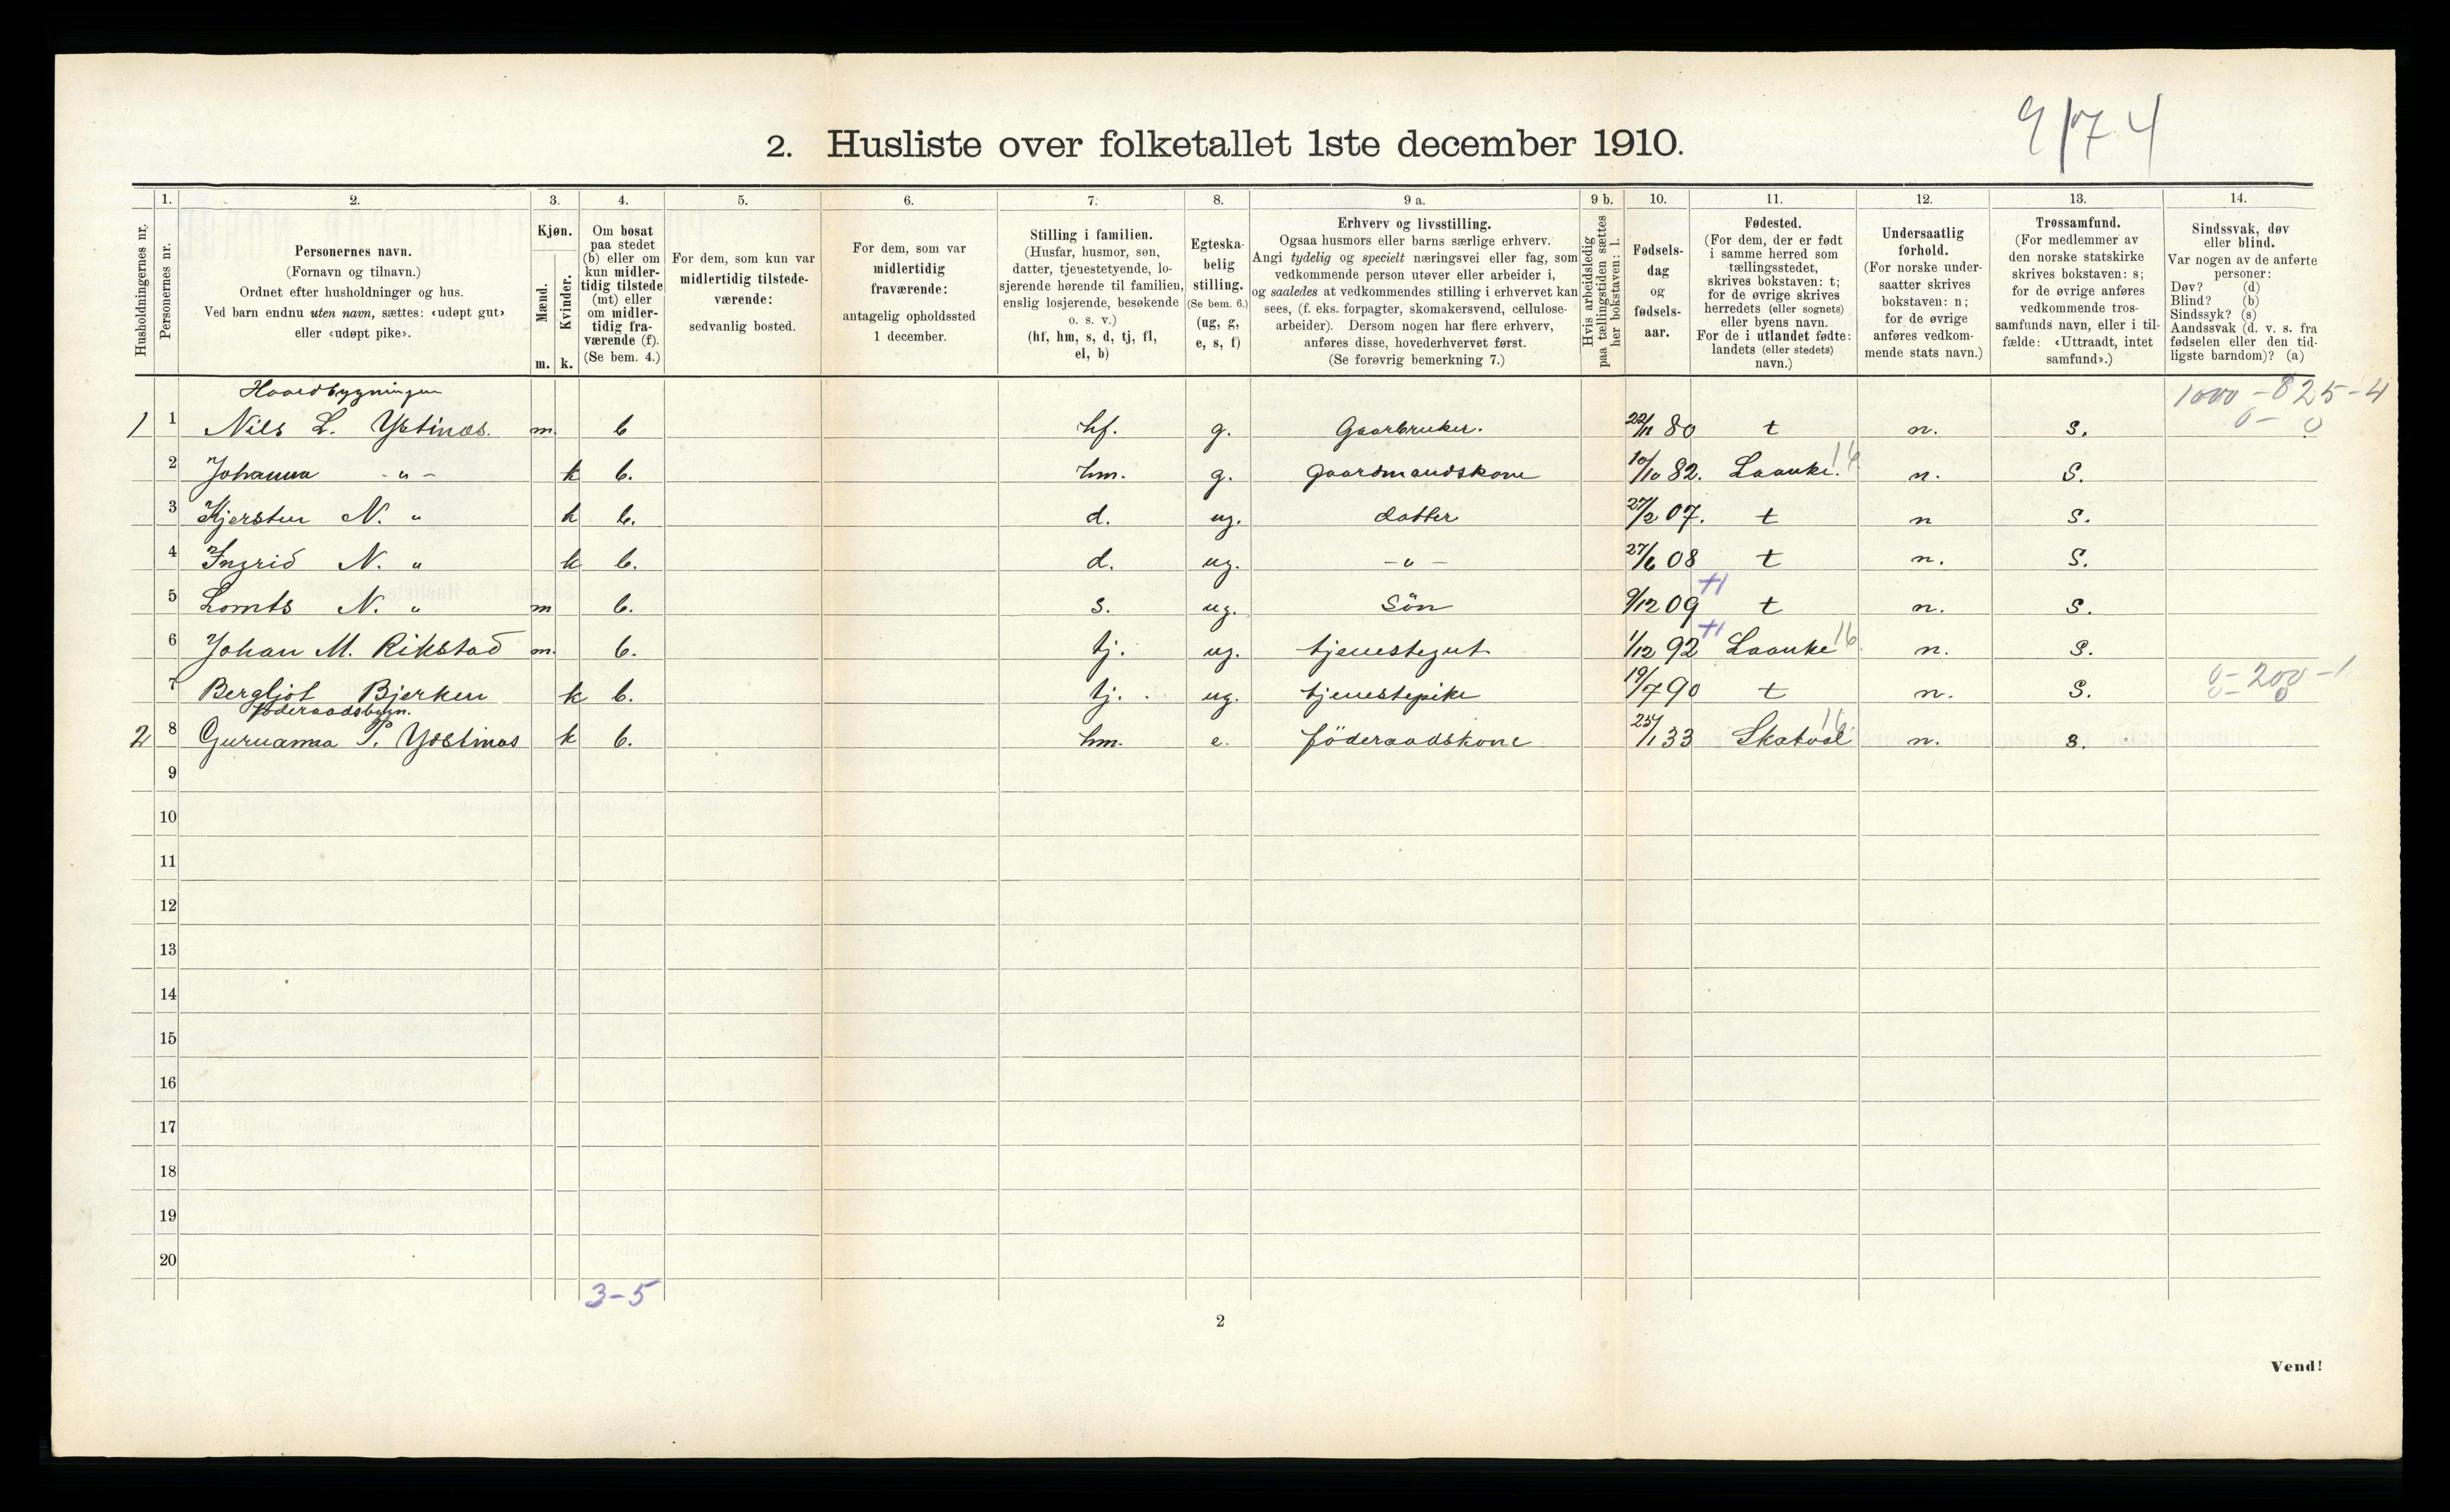 9/74
2. Husliste over folketallet 1ste december 1910.
Husholdningernes nr.
1.
Personernes nr.
2.
Personernes navn.
(Fornavn og tilnavn.)
Ordnet efter husholdninger og hus.
Ved barn endnu uten navn, sættes: «udøpt gut»
eller «udøpt pike».
3.
Kjøn.
Mænd.
Kvinder.
m. k.
4.
Om bosat
paa stedet
(b) eller om
kun midler-
tidig tilstede
(mt) eller
om midler-
tidig fra-
værende (f).
(Se bem. 4.)
5.
For dem, som kun var
midlertidig tilstede-
værende:
sedvanlig bosted.
6.
For dem, som var
midlertidig
fraværende:
antagelig opholdssted
1 december.
7.
Stilling i familien.
(Husfar, husmor, søn,
datter, tjenestetyende, lo-
sjerende hørende til familien,
enslig losjerende, besøkende
o. s. v.)
(hf, hm, s, d, tj, fl,
el, b)
8.
Egteska-
belig
stilling.
(Se bem. 6.)
(ug, g,
e, s, f)
9 a.
Erhverv og livsstilling.
Ogsaa husmors eller barns særlige erhverv.
Angi tydelig og specielt næringsvei eller fag, som
vedkommende person utøver eller arbeider i,
og saaledes at vedkommendes stilling i erhvervet kan
sees, (f. eks. forpagter, skomakersvend, cellulose-
arbeider). Dersom nogen har flere erhverv,
anføres disse, hovederhvervet først.
(Se forøvrig bemerkning 7.)
9 b.
Hvis arbeidsledig
paa tællingstiden sættes
her bokstaven: l.
10.
Fødsels-
dag
og
fødsels-
aar.
11.
Fødested.
(For dem, der er født
i samme herred som
tællingsstedet,
skrives bokstaven: t;
for de øvrige skrives
herredets (eller sognets)
eller byens navn.
For de i utlandet fødte:
landets (eller stedets)
navn.)
12.
Undersaatlig
forhold.
(For norske under-
saatter skrives
bokstaven: n;
for de øvrige
anføres vedkom-
mende stats navn.)
13.
Trossamfund.
(For medlemmer av
den norske statskirke
skrives bokstaven: s;
for de øvrige anføres
vedkommende tros-
samfunds navn, eller i til-
fælde: «Uttraadt, intet
samfund».)
14.
Sindssvak, døv
eller blind.
Var nogen av de anførte
personer:
Døv? (d)
Blind? (b)
Sindssyk? (s)
Aandssvak (d. v. s. fra
fødselen eller den tid-
ligste barndom)? (a)
Hovedbygningen 1000-825-4
0- 0
1 1 Nils L. Ystinæs. m. b hf. g. Gaarbruker. 80 t n. s.
2 Johanna -"- k b. hm. g. gaardmandskone 10/10 82. Laanke. 16 n. s.
3 Kjersten N. " k b. d. ug. datter 27/2 07. t n s.
4 Ingrid N. " k b. d. ug. -"- 27/6 08 t n. s.
5 Lomts N. " m b. s. ug. Sön 9/12 09 +1 t n. s.
6 Johan M. Rikstad m. b. tj. ug. tjenestegut 1/12 92 +1 Laanke 16 n. s.
7 Bergljot Bjerken k b. tj. ug. tjenestepike 19/7 90 t n. s. 0-200-1
föderaadsbygn. 0
2 8 Guruanna P. Ystinæs k b. hm. e. föderaadskone 25/1 33 Skatval 16 n. s.
9
10
11
12
13
14
15
16
17
18
19
20
3-5
2
Vend!